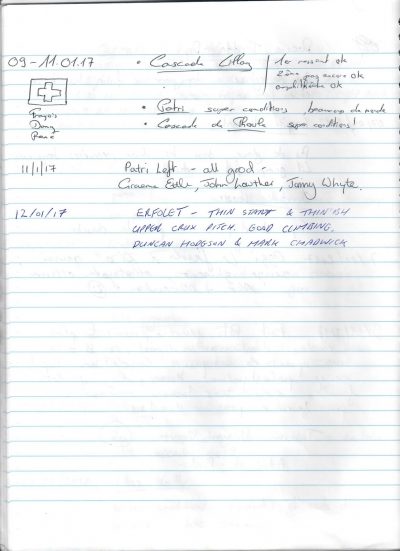 09-11.01.17
• Cascade Lillaz
1er ressaut ok
2ème pas encore ok
amphithéâtre ok
• Patri super conditions beaucoup de monde
• Cascade de super conditions!
François
Dany
René
11/1/17 Patri Left - all good -
Graeme Ettle, John Lowther, Jonny Whyte.
12/01/17 ERFOLET - THIN START & THIN ISH
UPPER CRUX PITCH. GOOD CLIMBING.
DUNCAN HODGSON & MARK CHADWICK